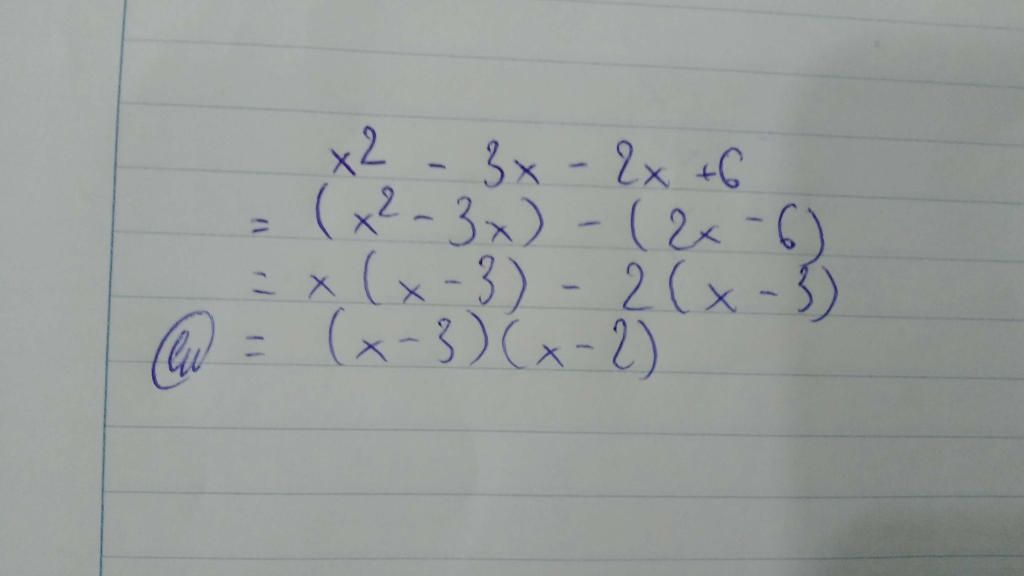 x² - 3x - 2x + 6
= (x² - 3x) - (2x - 6)
= x(x - 3) - 2(x - 3)
= (x - 3)(x - 2)